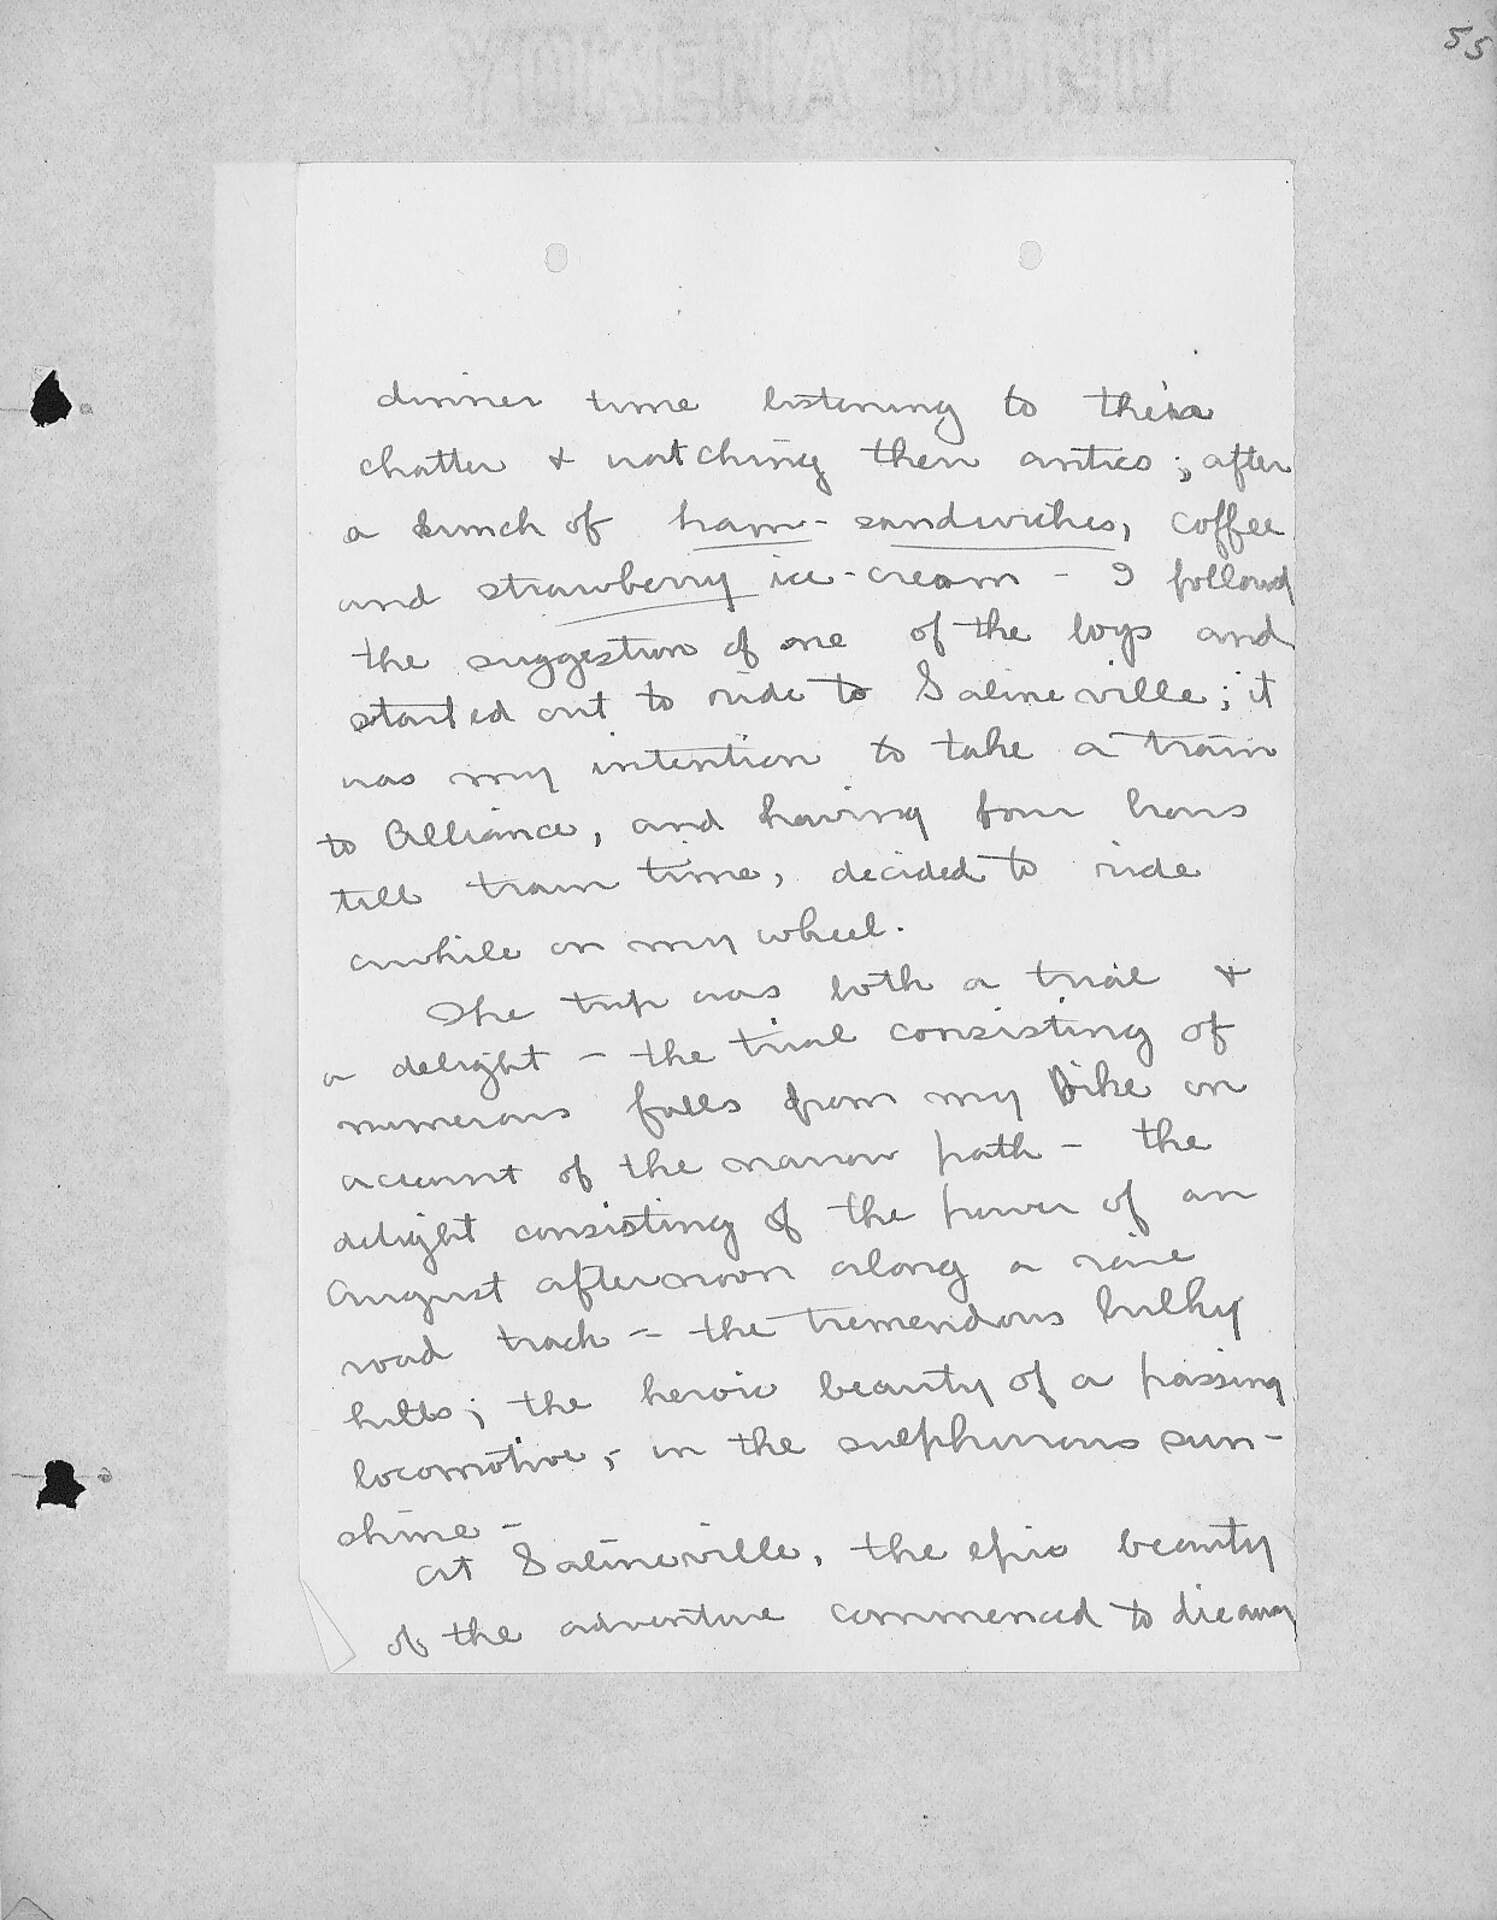 55
dinner time listening to their
chatter & watching their antics; after
a lunch of ham-sandwiches, coffee
and strawberry ice-cream - I followed
the suggestion of one of the boys and
started out to ride to Salineville; it
was my intention to take a train
to Alliance, and having four hours
till train time, decided to ride
awhile on my wheel.
The trip was both a trial &
a delight - the trial consisting of
numerous falls from my bike on
account of the narrow path - the
delight consisting of the power of an
August afternoon along a
road track - the tremendous bulky
hills; the heroic beauty of a passing
locomotive, - in the sulphurous sun-
shine -
At Salineville, the epic beauty
of the adventure commenced to die away